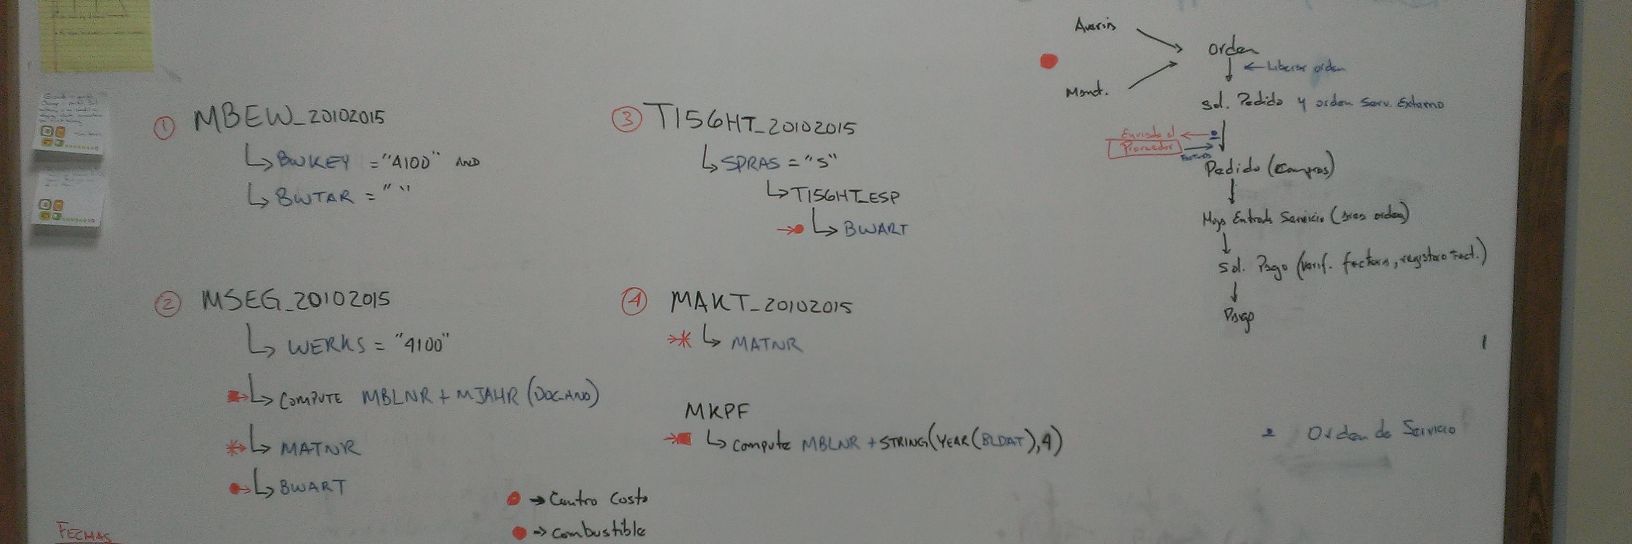 ① MBEW_20102015
BWKEY = "4100" AND
BWTAR = " "
② MSEG_20102015
WERKS = "4100"
COMPUTE MBLNR + MJAHR (DOCANO)
MATNR
BWART
③ T156HT_20102015
SPRAS = "S"
T156HT_ESP
BWART
④ MAKT_20102015
MATNR
MKPF
compute MBLNR + STRING(YEAR(BLDAT),4)
→ Centro Costo
→ Combustible
FECHAS
Orden
Mant.
← Liberar orden
Sol. Pedido y orden Serv. Externo
Proveedor
Pedido (Compras)
Entrada Servicio
Sol. Pago (Verif. factura, registro fact.)
Pago
Orden de Servicio